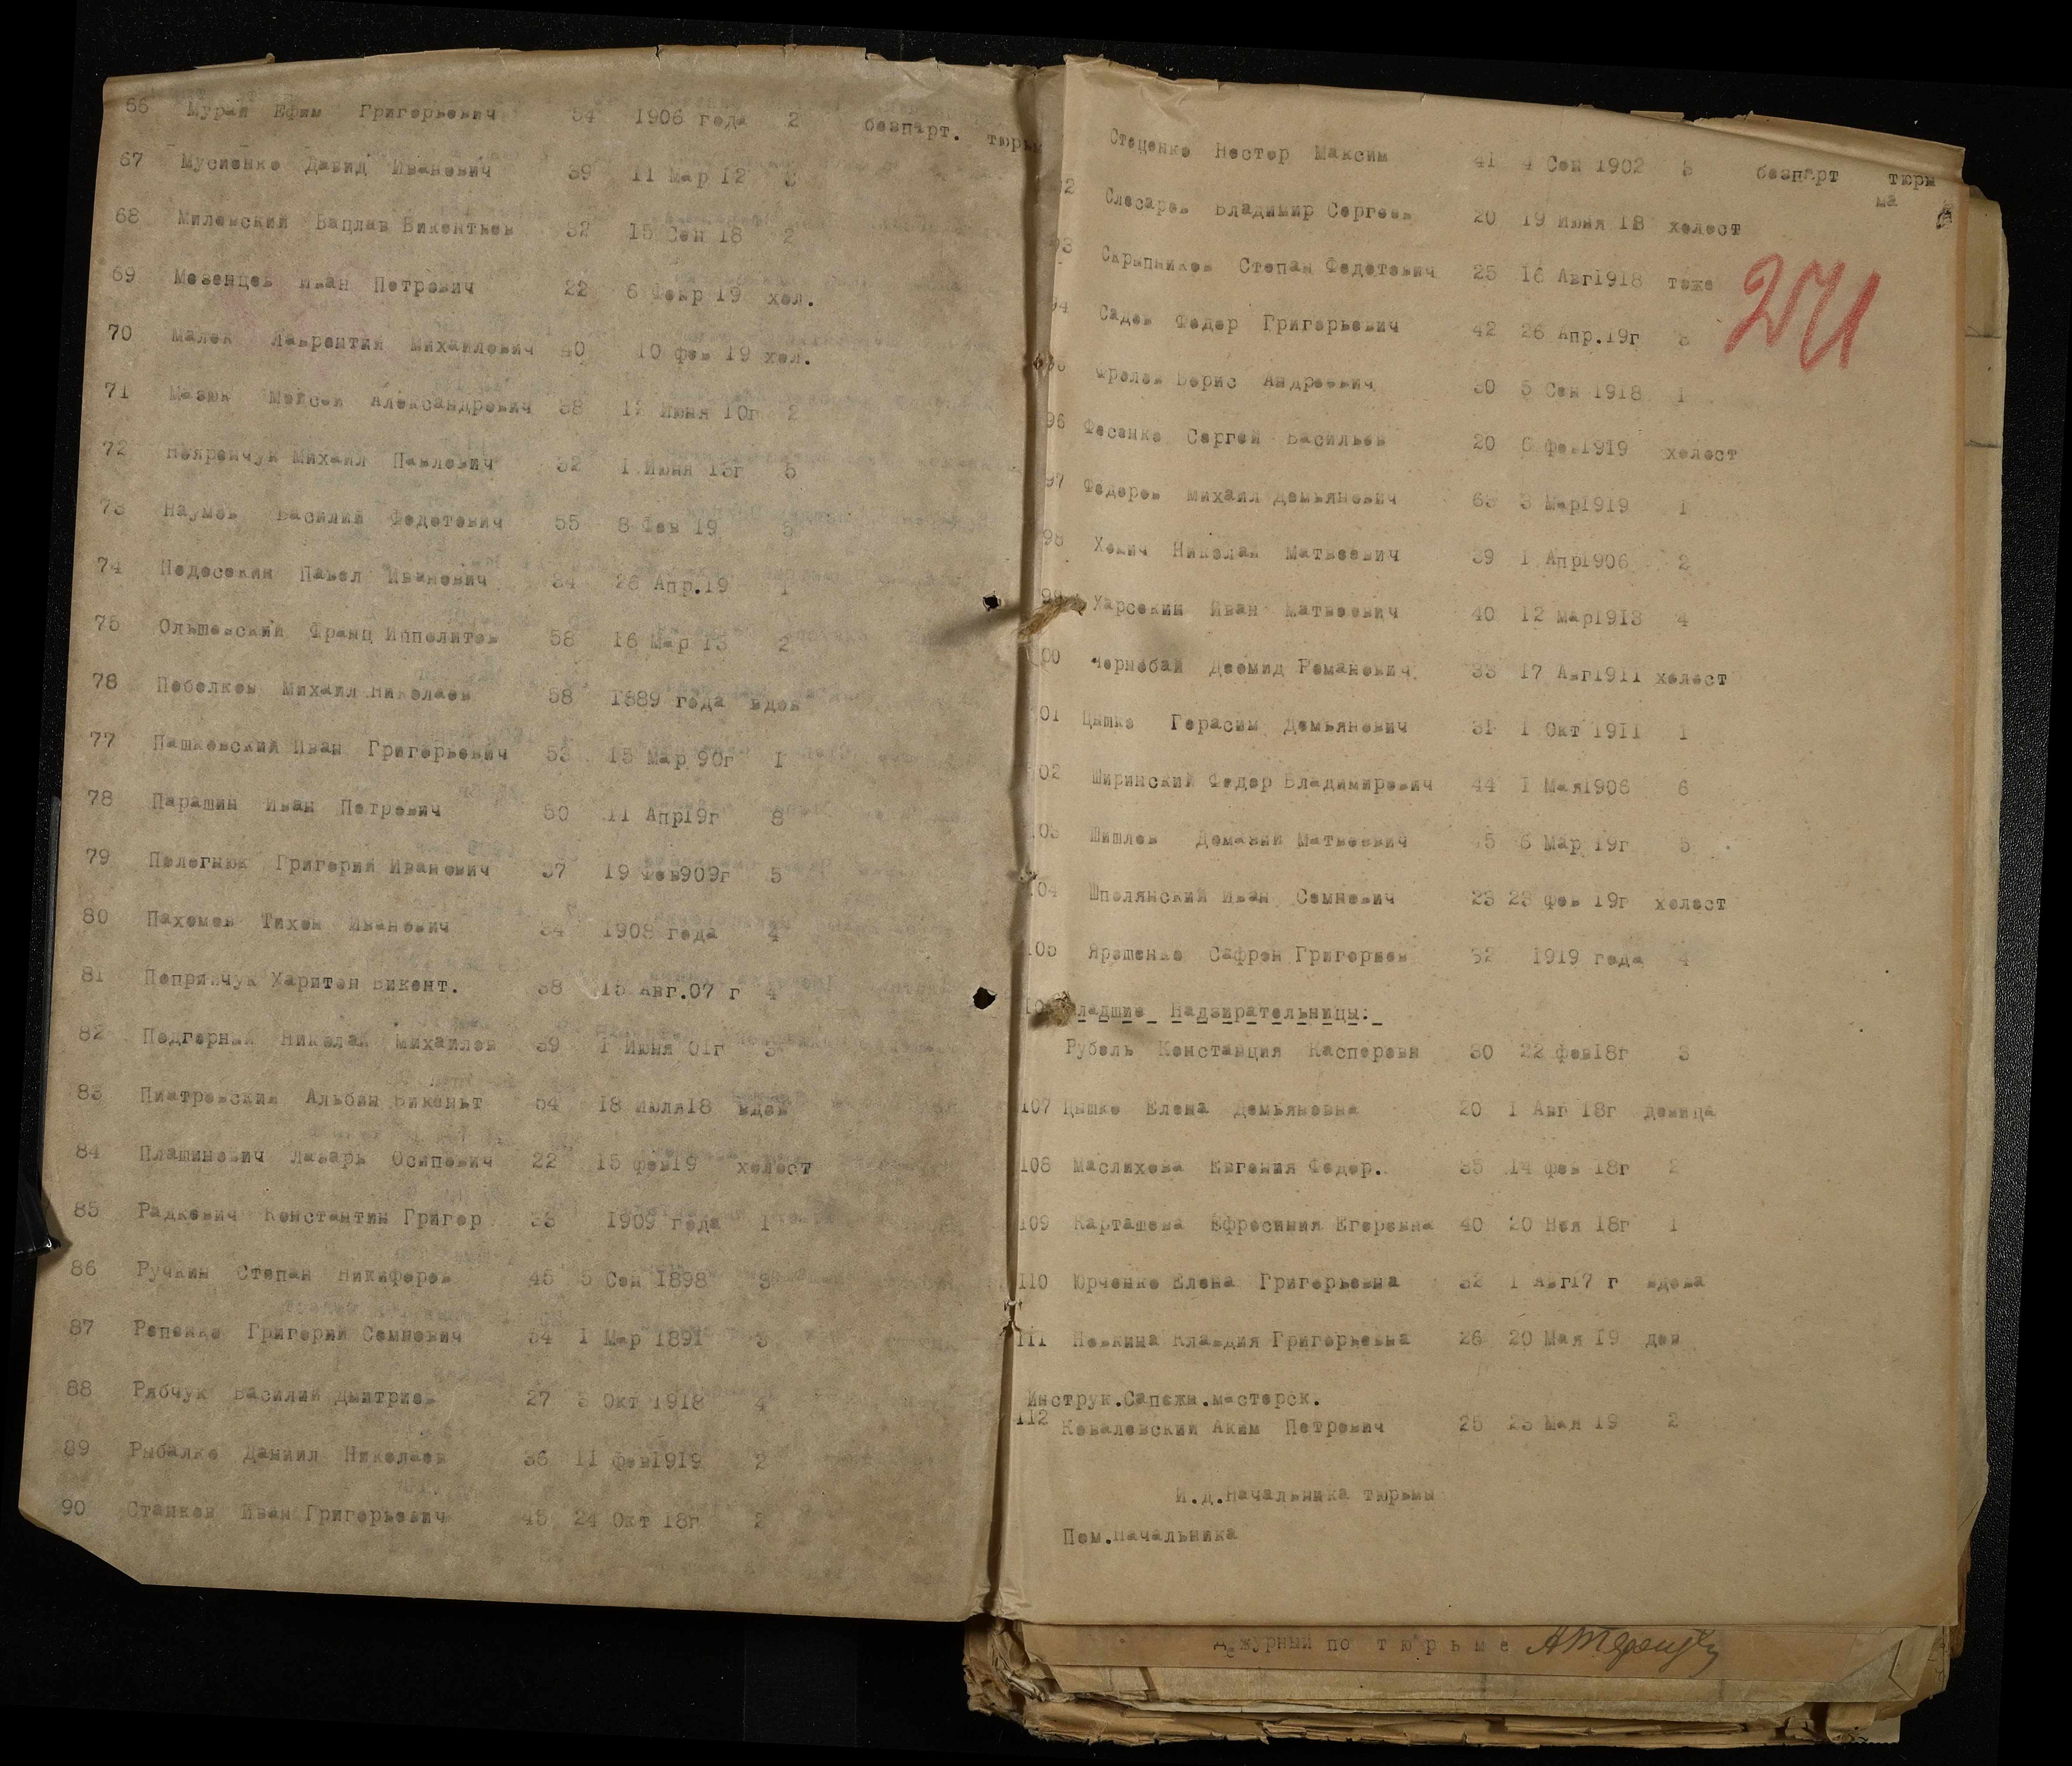 66 Мурай Ефим Григорьевич 54 1906 года 2 безпарт. тюрьм
67 Мусиенко Давид Иванович 39 11 Мар 12 3
68 Милевский Вацлав Викентьев 32 15 Сен 18 2
69 Мезенцев Иван Петрович 22 6 Февр 19 хол.
70 Малек Лаврентий Михайлович 40 10 фев 19 хол.
71 Мазюк Мойсей Александрович 38 12 Июня 10г 2
72 Михаил Павлович 32 1 Июня 13г 5
73 Наумов Василий Федотович 55 8 Фев 19 3
74 Недосекин Павел Иванович 34 26 Апр.19 1
75 Ольшевский Франц Ипполитов 58 16 Мар 13 2
76 Побелков Михаил Николаев 58 1889 года вдов
77 Пашковский Иван Григорьевич 53 15 Мар 90г 1
78 Парашин Иван Петрович 50 11 Апр19г 8
79 Пелегнюк Григорий Иванович 37 19 Фев909г 5
80 Пахомов Тихон Иванович 34 1908 года 4
81 Попривчук Харитон Викент. 38 15 Авг.07 г 4
82 Подгорный Николай Михайлов 39 1 Июня 01г 3
83 Пиатровский Альбин Викеньт 54 18 Июля18 вдов
84 Плашинович Лазарь Осипович 22 15 фев19 холост
85 Радкевич Константин Григор 33 1909 года 1
86 Ручкин Степан Никифоров 45 5 Сен 1898 3
87 Репенко Григорий Семнович 54 1 Мар 1891 3
88 Рябчук Василий Дмитриев 27 3 Окт 1918 4
89 Рыбалко Даниил Николаев 36 11 фев1919 2
90 Станков Иван Григорьевич 45 24 Окт 18г 2
Стеценко Нестор Максим 41 4 Сен 1902 3 безпарт тюрьма
92 Слесарев Владимир Сергеев 20 19 Июня 18 холост
93 Скрыпников Степан Федотович 25 16 Авг1918 тоже
271
94 Садов Федор Григорьевич 42 26 Апр.19г 3
Фролов Борис Андреевич 30 5 Сен 1918 1
96 Фесенко Сергей Васильев 20 6 фев1919 холост
97 Федоров Михаил Демьянович 63 3 Мар1919 1
98 Хомич Николай Матвеевич 39 1 Апр1906 2
99 Харсекин Иван Матвеевич 40 12 Мар1913 4
00 Чернобай Деомид Романович 33 17 Авг1911 холост
01 Цышко Герасим Демьянович 31 1 Окт 1911 1
02 Ширинский Федор Владимирович 44 1 Мая1906 6
03 Шишлов Матвеевич 45 6 Мар 19г 5
104 Шполянский Иван Семнович 23 23 фев 19г холост
105 Ярошенко Сафрон Григорьев 32 1919 года 4
ладшие Надзирательницы:
Рубель Констанция Касперовн 30 22 фев18г 3
107 Цышко Елена Демьяновна 20 1 Авг 18г девица
108 Маслихова Евгения Федор. 35 14 фев 18г 2
109 Карташева Ефросиния Егоровна 40 20 Ноя 18г 1
110 Юрченко Елена Григорьевна 32 1 Авг17 г вдова
111 Новкина Клавдия Григорьевна 26 20 Мая 19 дев
Инструк.Сапожн.мастерск.
112 Ковалевский Аким Петрович 25 23 Мая 19 2
И.д.Начальника тюрьмы
Пом.Начальника
Дежурный по тюрьме